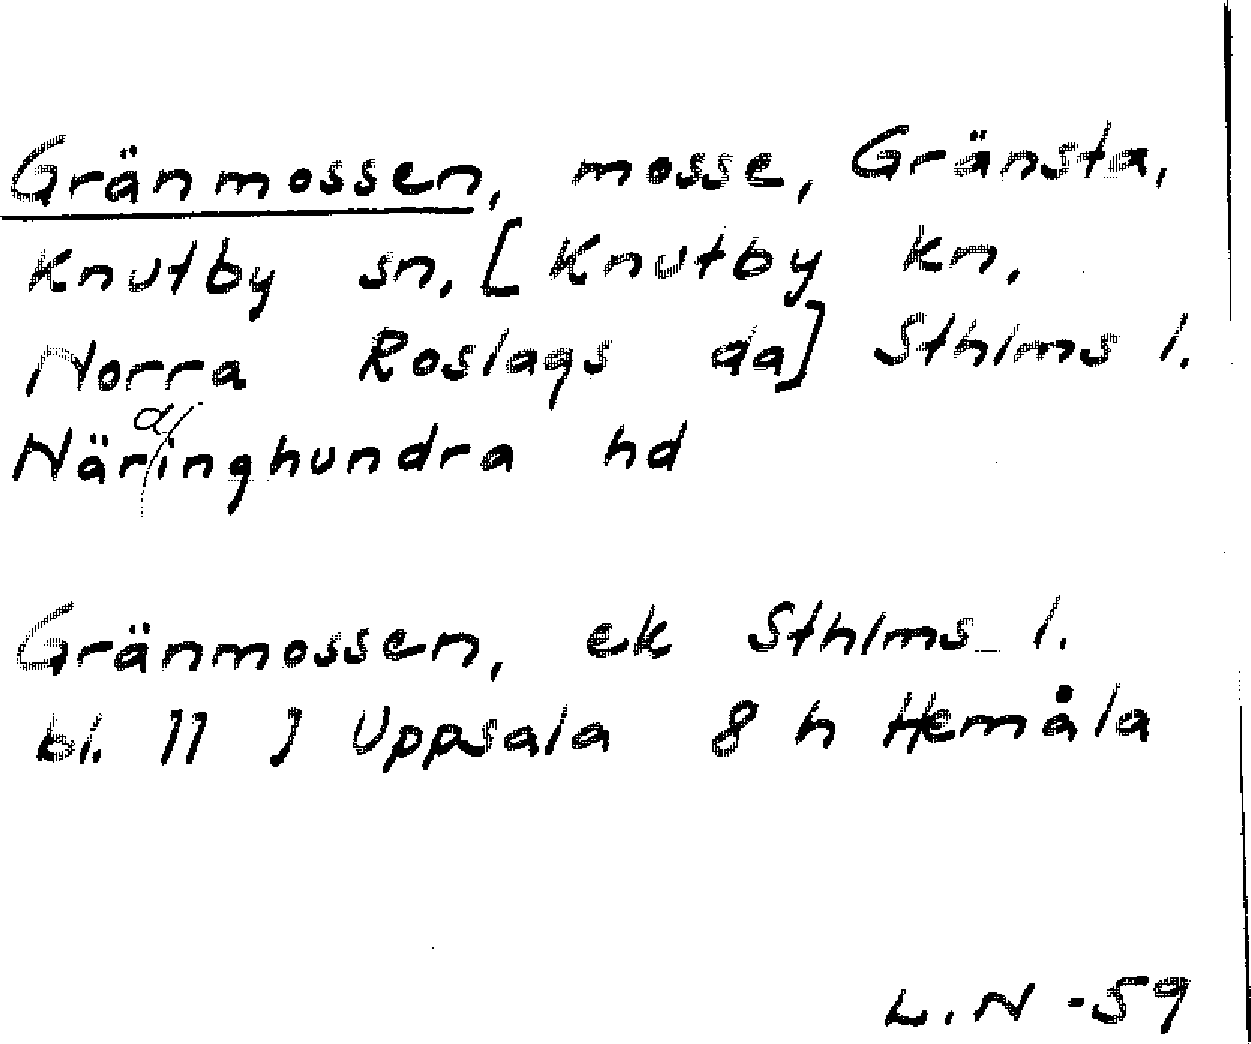 Gränmossen, mosse, Gränsta,
Knutby sn. [Knutby kn,
Norra Roslags da] Sthlms l.
Närdinghundra hd
Gränmossen, ek Sthlms l.
bl. 11 J Uppsala 8 h Hemåla
L.N -59